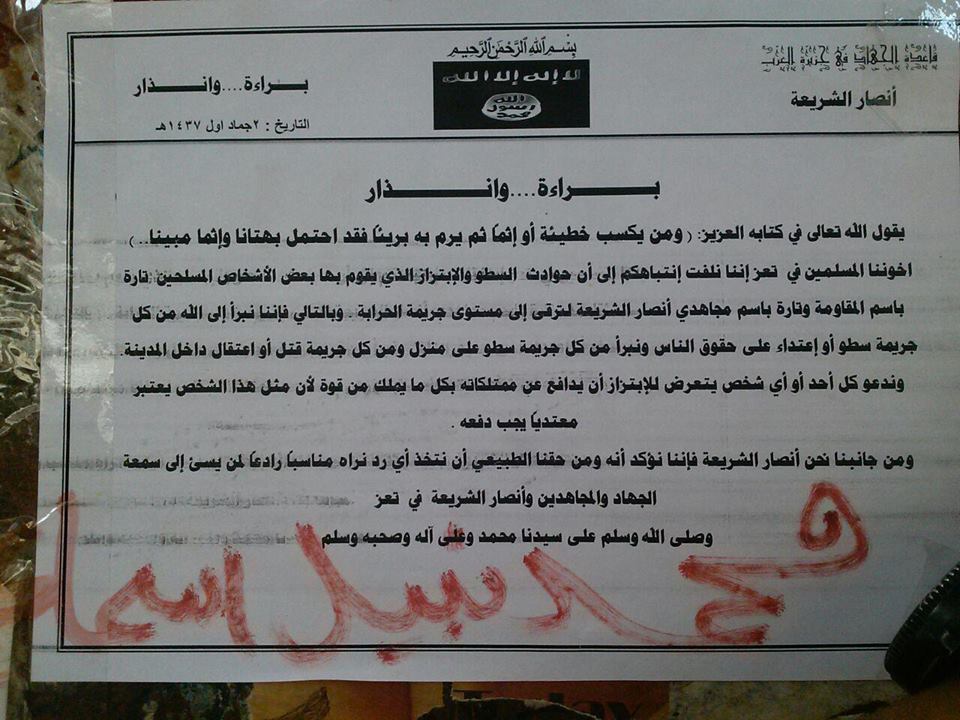 بِسْمِ اللَّهِ الرَّحْمَنِ الرَّحِيمِ
قاعدة الجهاد في جزيرة العرب
أنصار الشريعة
لا إله إلا الله
الله
رسول
محمد
بـراءة....وانـذار
التاريخ : ٢ جماد اول ١٤٣٧هـ
بـراءة....وانـذار
يقول الله تعالى في كتابه العزيز: ( ومن يكسب خطيئة أو إثما ثم يرم به بريئا فقد احتمل بهتانا وإثما مبينا.. )
اخوننا المسلمين في تعز إننا نلفت إنتباهكم إلى أن حوادث السطو والإبتزاز الذي يقوم بها بعض الأشخاص المسلحين تارة
باسم المقاومة وتارة باسم مجاهدي أنصار الشريعة لترقى إلى مستوى جريمة الحرابة . وبالتالي فإننا نبرأ إلى الله من كل
جريمة سطو أو إعتداء على حقوق الناس ونبرأ من كل جريمة سطو على منزل ومن كل جريمة قتل أو اعتقال داخل المدينة.
وندعو كل أحد أو أي شخص يتعرض للإبتزاز أن يدافع عن ممتلكاته بكل ما يملك من قوة لأن مثل هذا الشخص يعتبر
معتديا يجب دفعه .
ومن جانبنا نحن أنصار الشريعة فإننا نؤكد أنه ومن حقنا الطبيعي أن نتخذ أي رد نراه مناسبا رادعا لمن يسئ إلى سمعة
الجهاد والمجاهدين وأنصار الشريعة في تعز
وصلى الله وسلم على سيدنا محمد وعلى آله وصحبه وسلم
محمد نبيل